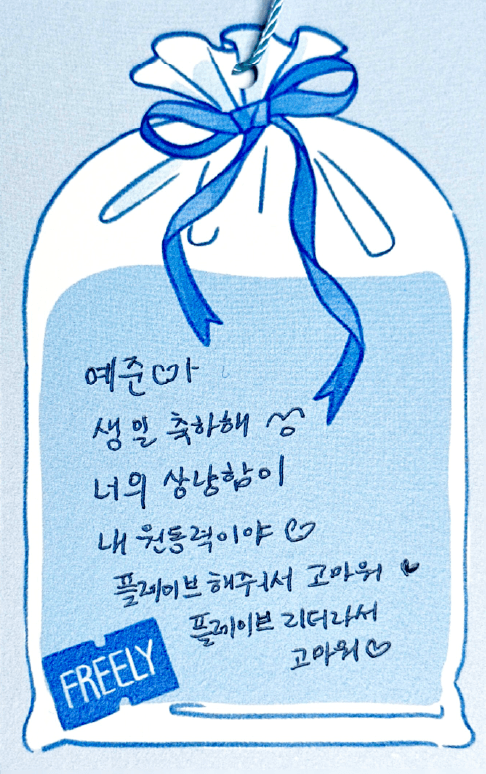 예준♡아
생일 축하해
너의 상냥함이
내 원동력이야 ♡
플레이브 해줘서 고마워 ♥
플레이브 리더라서
고마워 ♡
FREELY